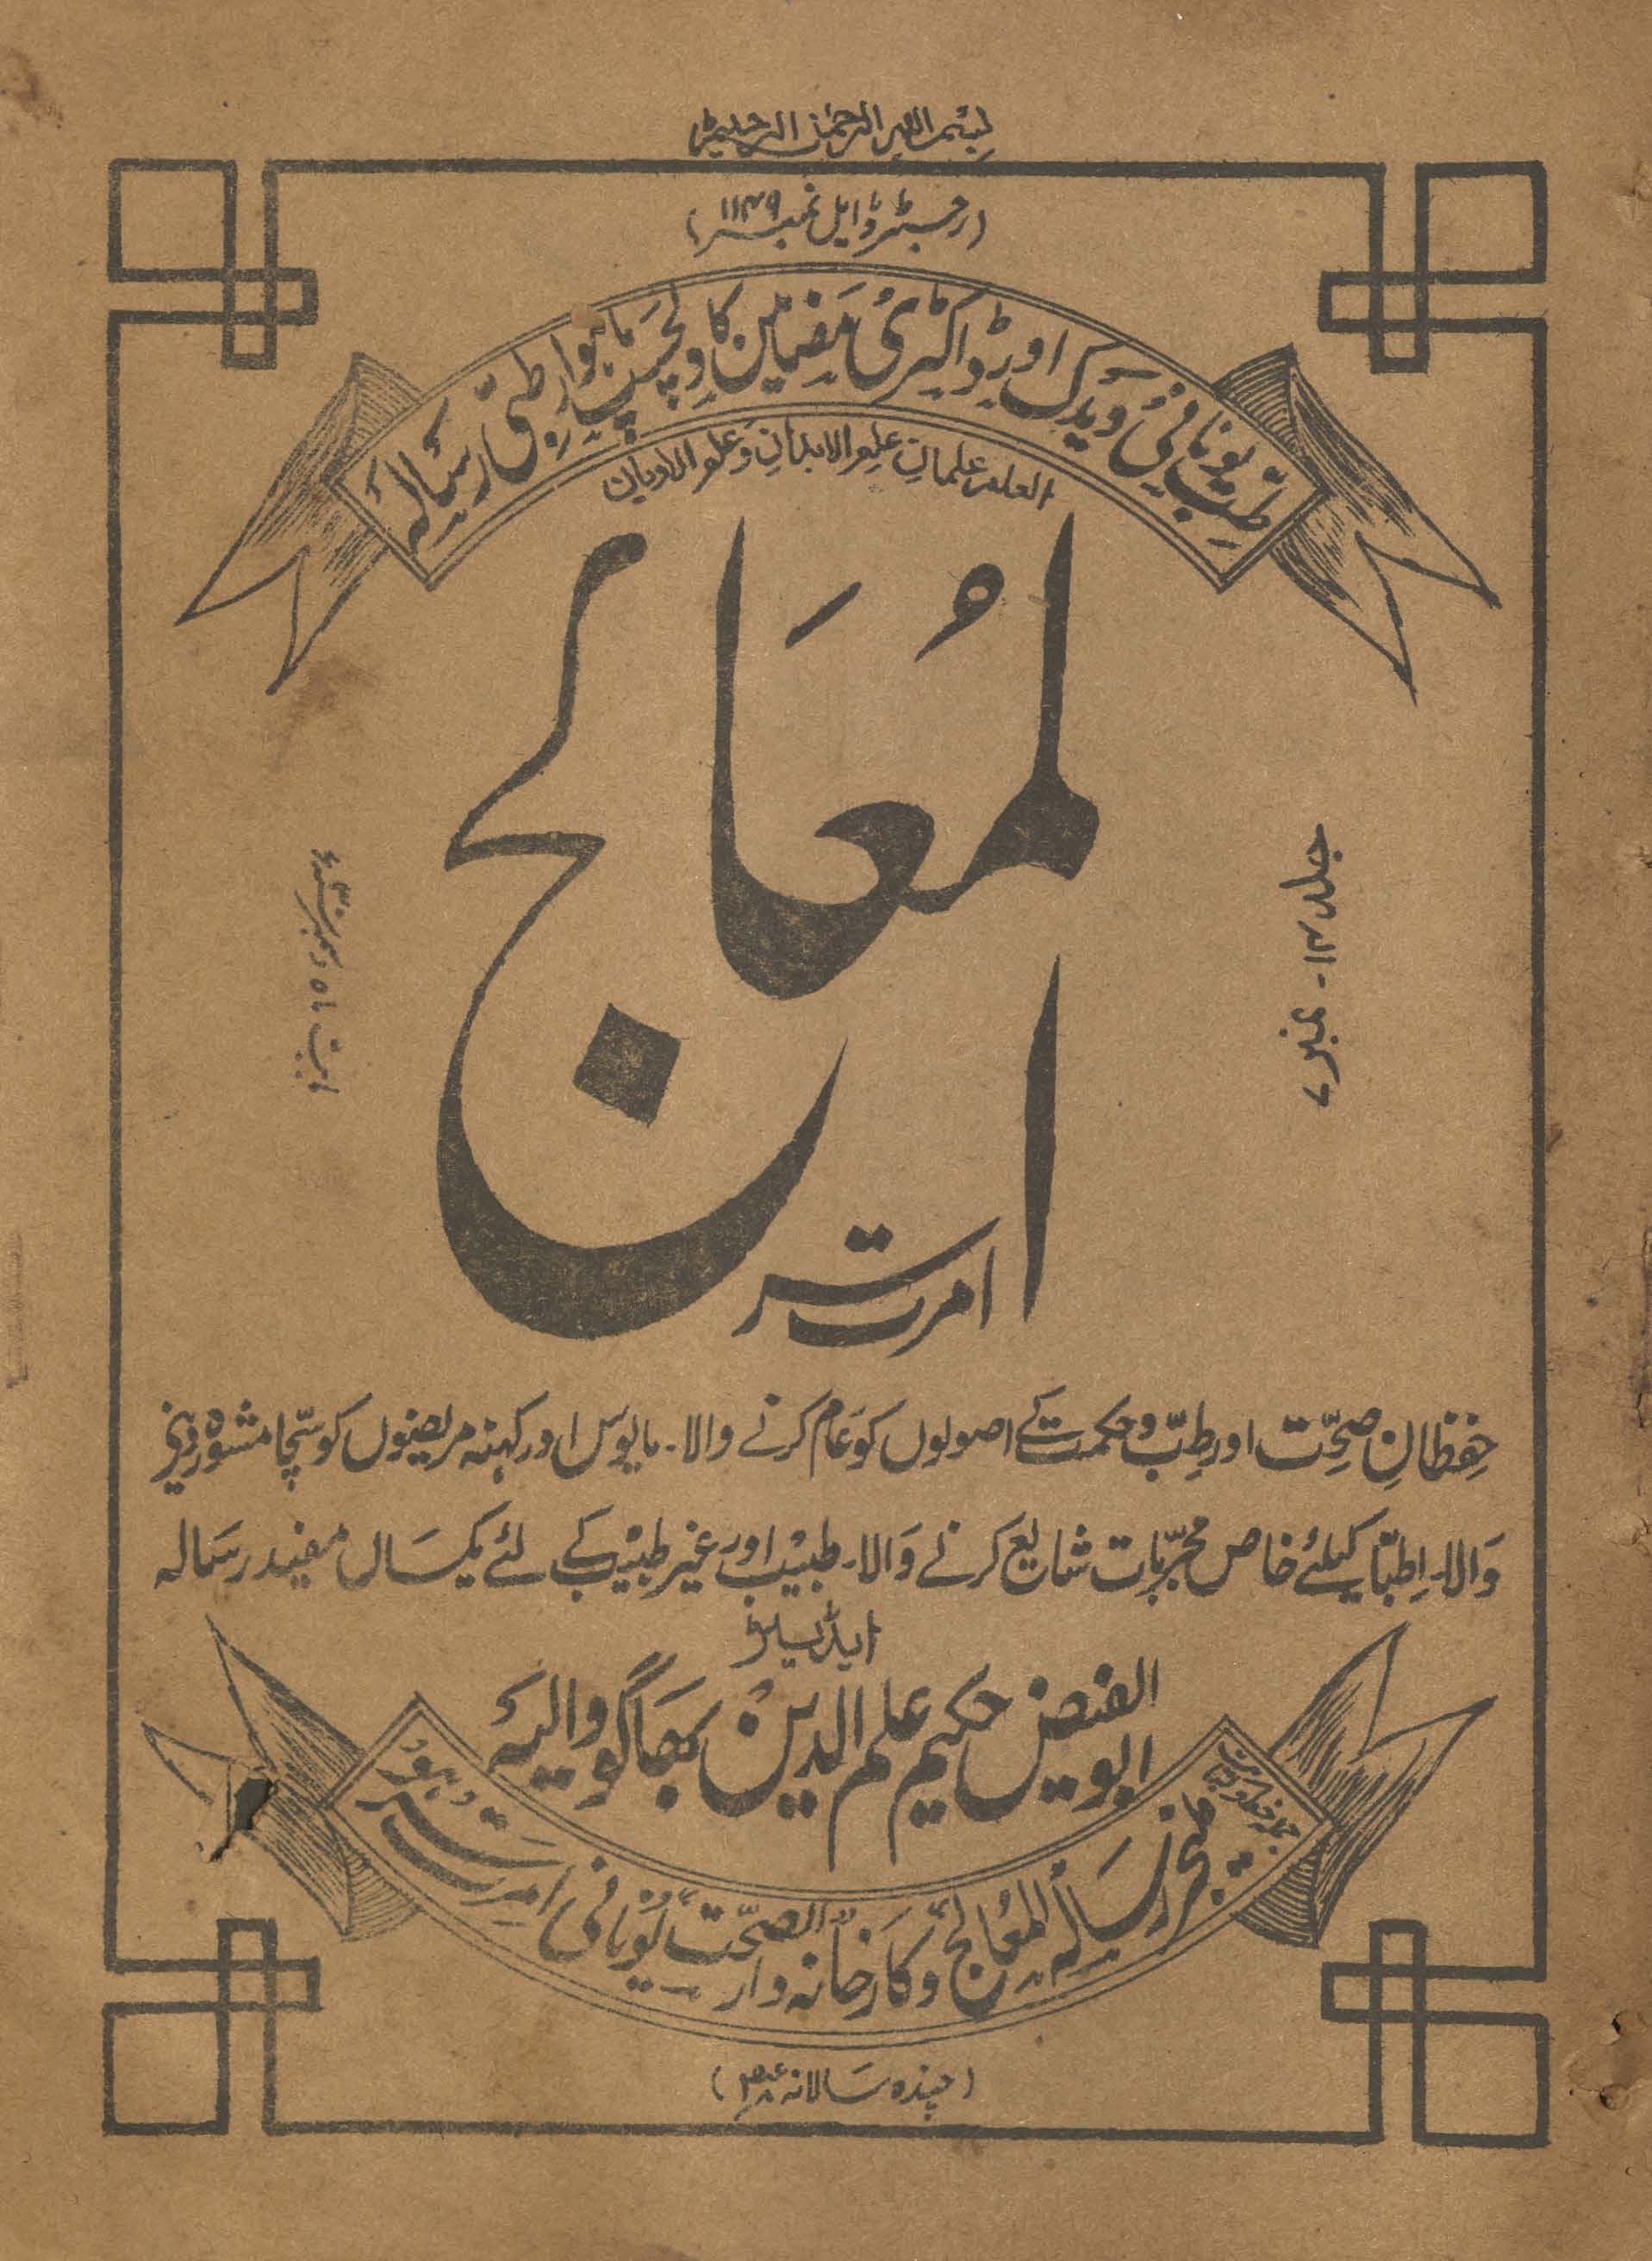 بِسْمِ اللهِ الرَّحْمٰنِ الرَّحِیْمِ
(رجسٹرڈ ایل نمبر ۱۱۴۹)
طبِ یونانی ویدک اور ڈاکٹری مضامین کا دلچسپ ماہوار طبّی رسالہ
العلم علمان علم الابدان وعلم الادیان
المُعَالج
امرتسر
جلد ۱۴ - نمبر ۷
بابت ماہ
حفظانِ صحّت اور طِبّ و حکمت کے اصولوں کو عام کرنے والا۔ مایوس اور کہنہ مریضوں کو سچّا مشورہ دینے
والا۔ اطبّا کیلئے خاص مجرّبات شایع کرنے والا۔ طبیب اور غیر طبیب کے لئے یکساں مفید رسالہ
ایڈیٹر
ابو الفیض حکیم علم الدین بھاگووالیہ
منیجر رسالہ المعالج و کارخانہ دار الصحّت یونانی امرتسر
(چندہ سالانہ)